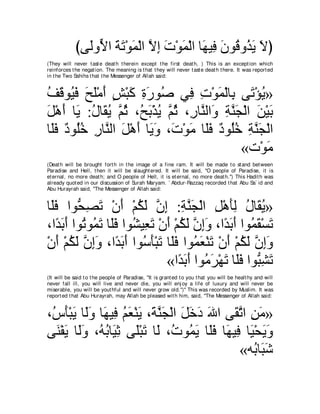 (لَا يَذُوقُونَ فِيهَا الْمَوْتَ إِلاَّ الْمَوْتَةَ الاٍّولَى)
(They will never taste death therein except the first death, ) This is an exception which
reinforces the negation. The meaning is that they will never taste death there. It was reported
in the Two Sahihs that the Messenger of Allah said:
«يُؤْتَى بِالْمَوْتِ فِي صُورَةِ كَبْشٍ أَمْلَحَ فَيُوقَفُ
بَيْنَ الْجَنَّةِ وَالنَّارِ، ثُمَّ يُذْبَحُ، ثُمَّ يُقَالُ: يَا أَهْلَ
الْجَنَّةِ خُلُودٌ فَلَا مَوْتَ، وَيَا أَهْلَ النَّارِ خُلُودٌ فَلَا
مَوْت»
(Death will be brought forth in the image of a fine ram. It will be made to stand between
Paradise and Hell, then it will be slaughtered. It will be said, "O people of Paradise, it is
eternal, no more death; and O people of Hell, it is eternal, no more death.") This Hadith was
already quoted in our discussion of Surah Maryam. `Abdur-Razzaq recorded that Abu Sa`id and
Abu Hurayrah said, "The Messenger of Allah said:
«يُقَالُ لِأَهْلِ الْجَنَّةِ: إِنَّ لَكُمْ أَنْ تَصِحُّوا فَلَا
تَسْقَمُوا أَبَدًا، وَإِنَّ لَكُمْ أَنْ تَعِيشُوا فَلَا تَمُوتُوا أَبَدًا،
وَإِنَّ لَكُمْ أَنْ تَنْعَمُوا فَلَا تَبْأَسُوا أَبَدًا، وَإِنَّ لَكُمْ أَنْ
تَشِبُّوا فَلَا تَهْرَمُوا أَبَدًا»
(It will be said to the people of Paradise, "It is granted to you that you will be healthy and will
never fall ill, you will live and never die, you will enjoy a life of luxury and will never be
miserable, you will be youthful and will never grow old.")" This was recorded by Muslim. It was
reported that Abu Hurayrah, may Allah be pleased with him, said, "The Messenger of Allah said:
«مَنِ اتَّقَى اللهَ دَخَلَ الْجَنَّةَ، يَنْعَمُ فِيهَا وَلَا يَبْأَسُ،
وَيَحْيَا فِيهَا فَلَا يَمُوتُ، لَا تَبْلَى ثِيَابُهُ، وَلَا يَفْنَى
شَبَابُه»